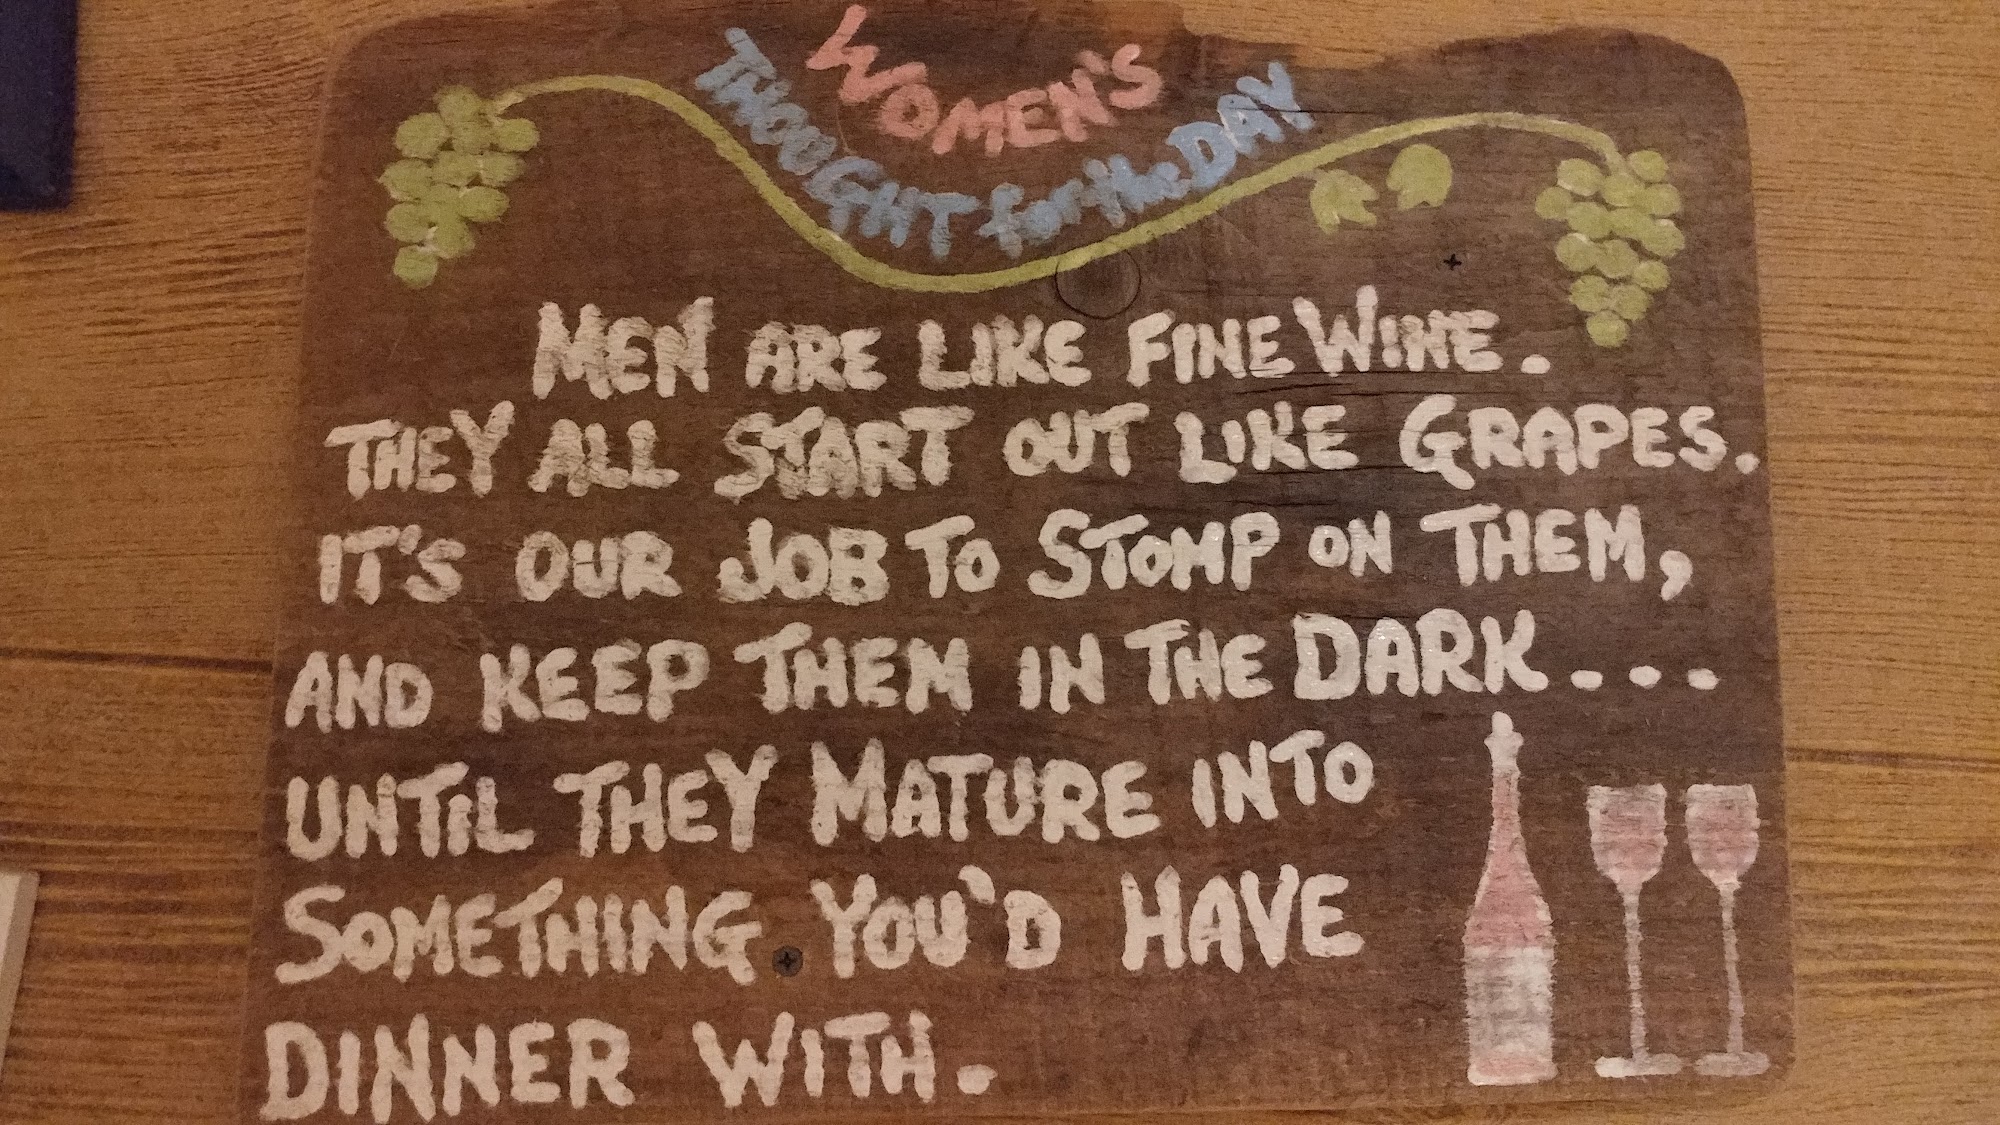 WOMEN'S
THOUGHT for the DAY
MEN ARE LIKE FINE WINE.
THEY ALL START OUT LIKE GRAPES.
IT'S OUR JOB TO STOMP ON THEM,
AND KEEP THEM IN THE DARK...
UNTIL THEY MATURE INTO
SOMETHING YOU'D HAVE
DINNER WITH.